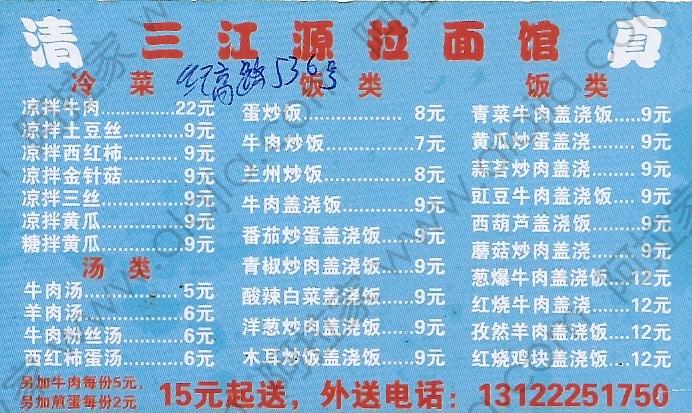 清 三江源拉面馆 真
冷菜
凉拌牛肉..............22元
凉拌土豆丝..........9元
凉拌西红柿..........9元
凉拌金针菇..........9元
凉拌三丝..............9元
凉拌黄瓜..............9元
糖拌黄瓜..............9元
汤类
牛肉汤..................5元
羊肉汤..................6元
牛肉粉丝汤..........6元
西红柿蛋汤..........6元
另加牛肉每份5元,
另加煎蛋每份2元
536号
饭类
蛋炒饭.................... 8元
牛肉炒饭................7元
兰州炒饭................8元
牛肉盖浇饭............9元
番茄炒蛋盖浇饭......9元
青椒炒肉盖浇饭......9元
酸辣白菜盖浇饭......9元
洋葱炒肉盖浇饭......9元
木耳炒饭盖浇饭......9元
饭类
青菜牛肉盖浇饭.....9元
黄瓜炒蛋盖浇........9元
蒜苔炒肉盖浇........9元
豇豆牛肉盖浇饭.....9元
西葫芦盖浇饭........9元
蘑菇炒肉盖浇........9元
葱爆牛肉盖浇饭....12元
红烧牛肉盖浇.......12元
孜然羊肉盖浇饭....12元
红烧鸡块盖浇饭....12元
15元起送，外送电话：13122251750
阿拉家 www.alajia.com